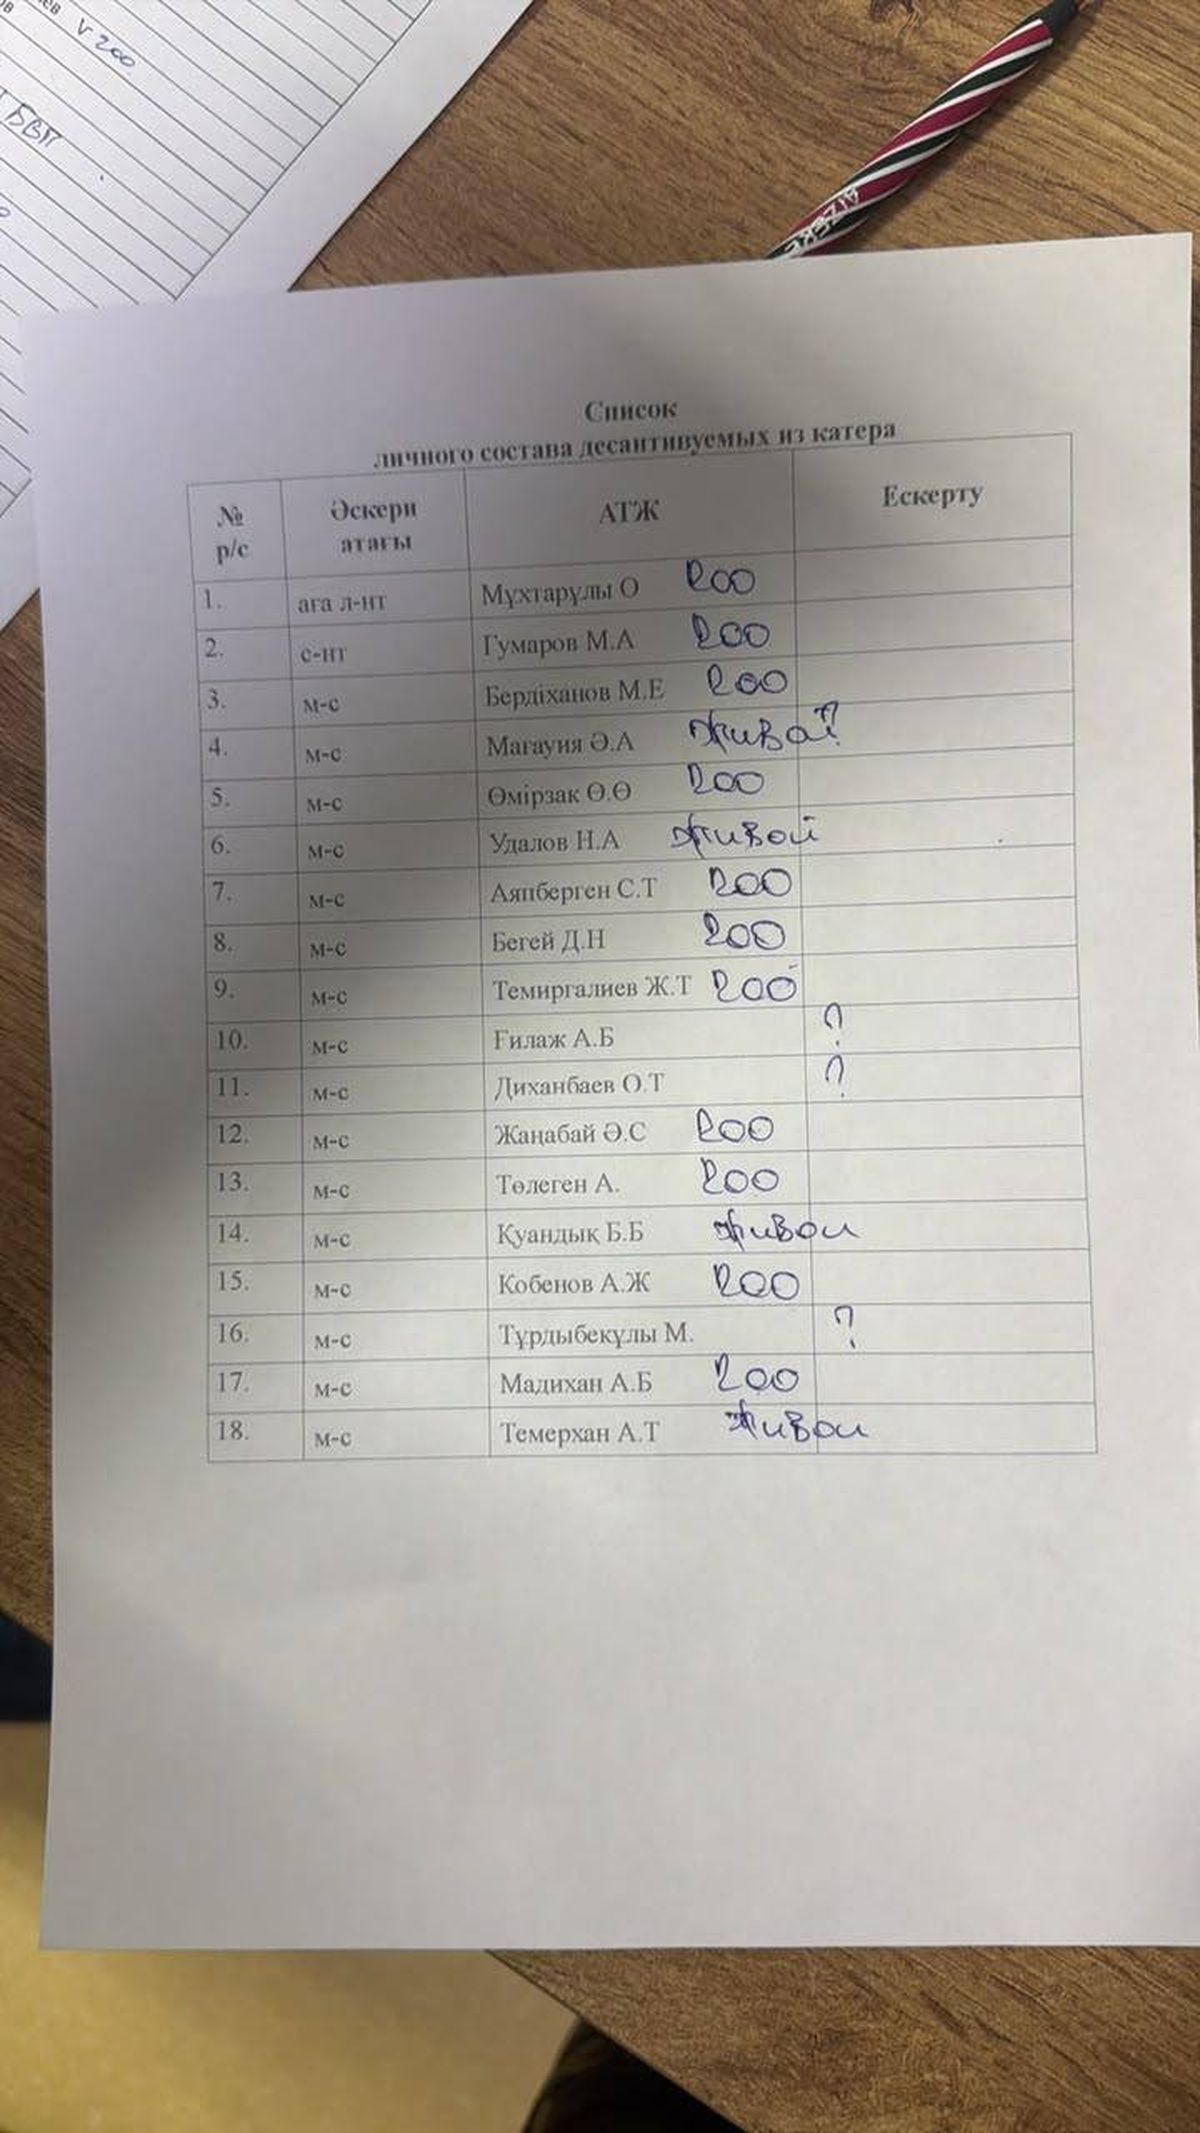 V 200
БВП
AIZERE
Список
личного состава десантивуемых из катера
№ р/с Әскери атағы АТЖ Ескерту
1. аға л-нт Мұхтарұлы О 200
2. с-нт Гумаров М.А 200
3. м-с Бердіханов М.Е 200
4. м-с Магауия Ә.А живой?
5. м-с Өмірзак Ө.Ө 200
6. м-с Удалов Н.А живой
7. м-с Аяпберген С.Т 200
8. м-с Бегей Д.Н 200
9. м-с Темиргалиев Ж.Т 200
10. м-с Ғилаж А.Б ?
11. м-с Диханбаев О.Т ?
12. м-с Жаңабай Ә.С 200
13. м-с Төлеген А. 200
14. м-с Қуандық Б.Б живои
15. м-с Кобенов А.Ж 200
16. м-с Тұрдыбекұлы М. ?
17. м-с Мадихан А.Б 200
18. м-с Темерхан А.Т живои